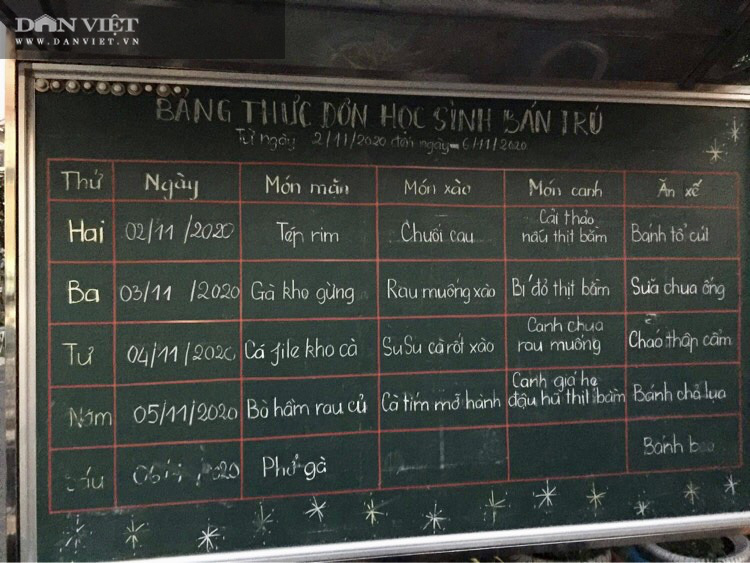 DÂN VIỆT
WWW.DANVIET.VN
BẢNG THỰC ĐƠN HỌC SINH BÁN TRÚ
Từ ngày 2/11/2020 đến ngày 6/11/2020
Thứ Ngày Món mặn Món xào Món canh Ăn xế
Hai 02/11/2020 Tép rim Chuối cau Cải thảo nấu thịt bằm Bánh tổ cút
Ba 03/11/2020 Gà kho gừng Rau muống xào Bí đỏ thịt bằm Sữa chua ống
Tư 04/11/2020 Cá file kho cà SuSu cà rốt xào Canh chua rau muống Cháo thập cẩm
Năm 05/11/2020 Bò hầm rau củ Cà tím mỡ hành Canh giá hẹ đậu hũ thịt bằm Bánh chả lụa
2020 Phở gà Bánh